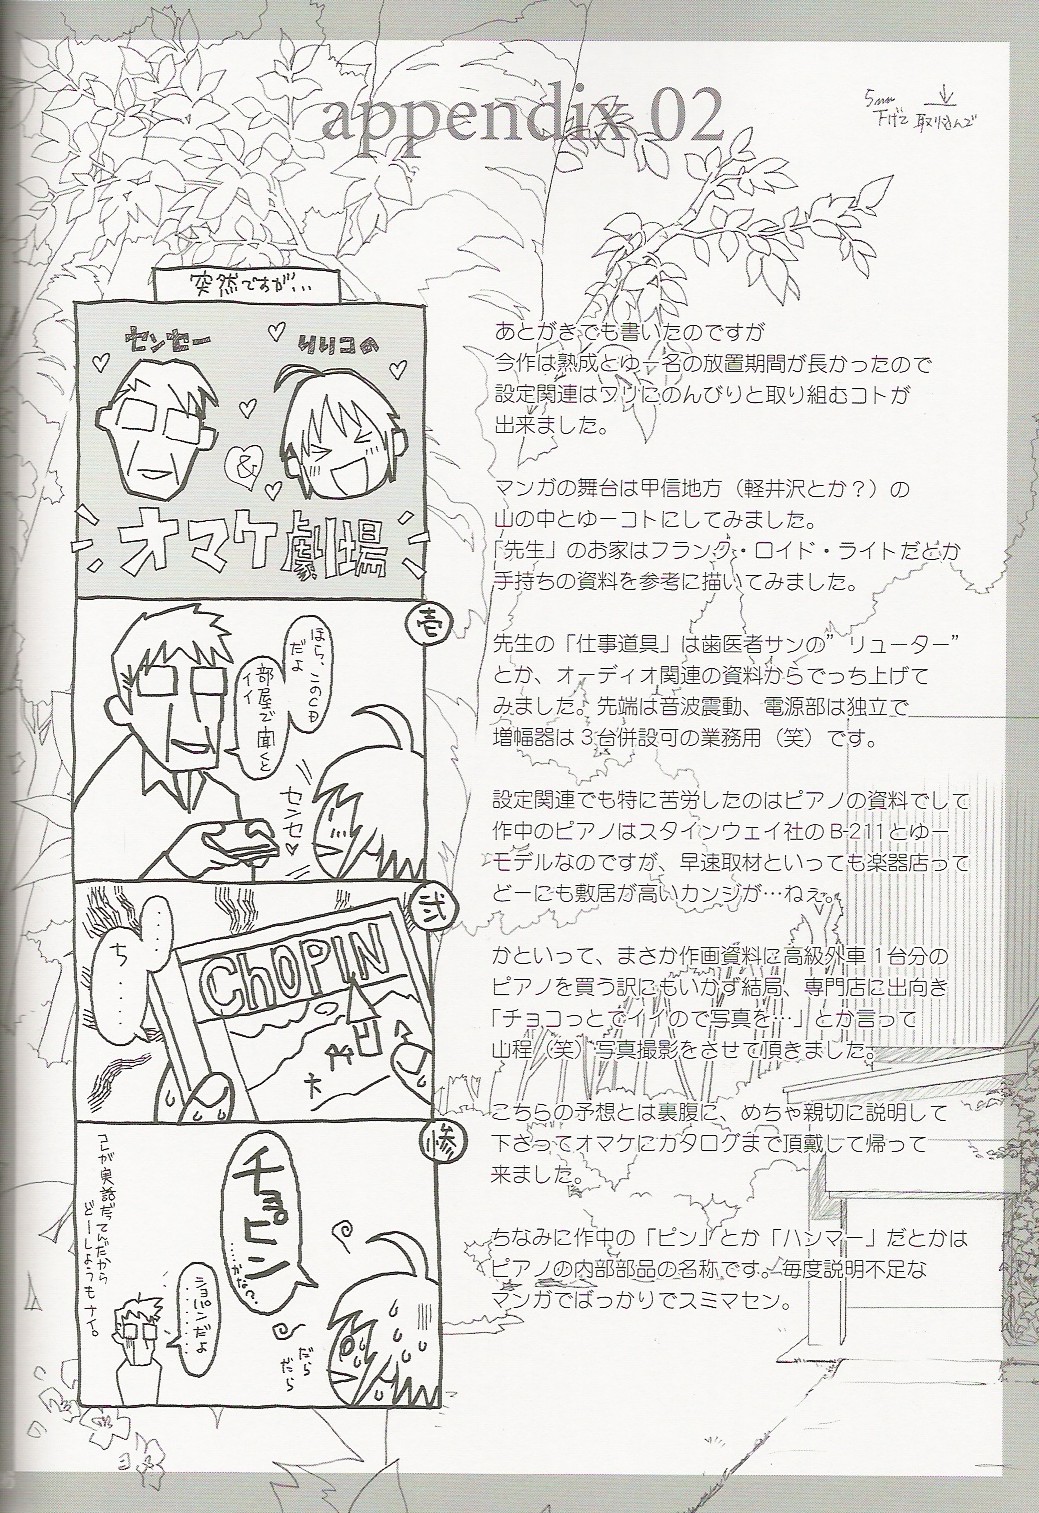 appendix 02
5mm
下げて 取り込んで
突然ですが…
センセー
りリコの
&
オマケ劇場
壱
ほら、このCD
だよ
部屋で聞くと
イイ
センセ♡
弐
……
ち……
ChOPIN
惨
チョピン
……かな?
ショパンだよ
………
だら
だら
コレが実話だってんだから
どーしようもナイ。
あとがきでも書いたのですが
今作は熟成とゆー名の放置期間が長かったので
設定関連はワリにのんびりと取り組むコトが
出来ました。
マンガの舞台は甲信地方（軽井沢とか？）の
山の中とゆーコトにしてみました。
「先生」のお家はフランク・ロイド・ライトだとか
手持ちの資料を参考に描いてみました。
先生の「仕事道具」は歯医者サンの”リューター”
とか、オーディオ関連の資料からでっち上げて
みました。先端は音波震動、電源部は独立で
増幅器は３台併設可の業務用（笑）です。
設定関連でも特に苦労したのはピアノの資料でして
作中のピアノはスタインウェイ社のB-211とゆー
モデルなのですが、早速取材といっても楽器店って
どーにも敷居が高いカンジが…ねぇ。
かといって、まさか作画資料に高級外車１台分の
ピアノを買う訳にもいかず結局、専門店に出向き
「チョコっとでイイので写真を…」とか言って
山程（笑）写真撮影をさせて頂きました。
こちらの予想とは裏腹に、めちゃ親切に説明して
下さってオマケにカタログまで頂戴して帰って
来ました。
ちなみに作中の「ピン」とか「ハンマー」だとかは
ピアノの内部部品の名称です。毎度説明不足な
マンガでばっかりでスミマセン。